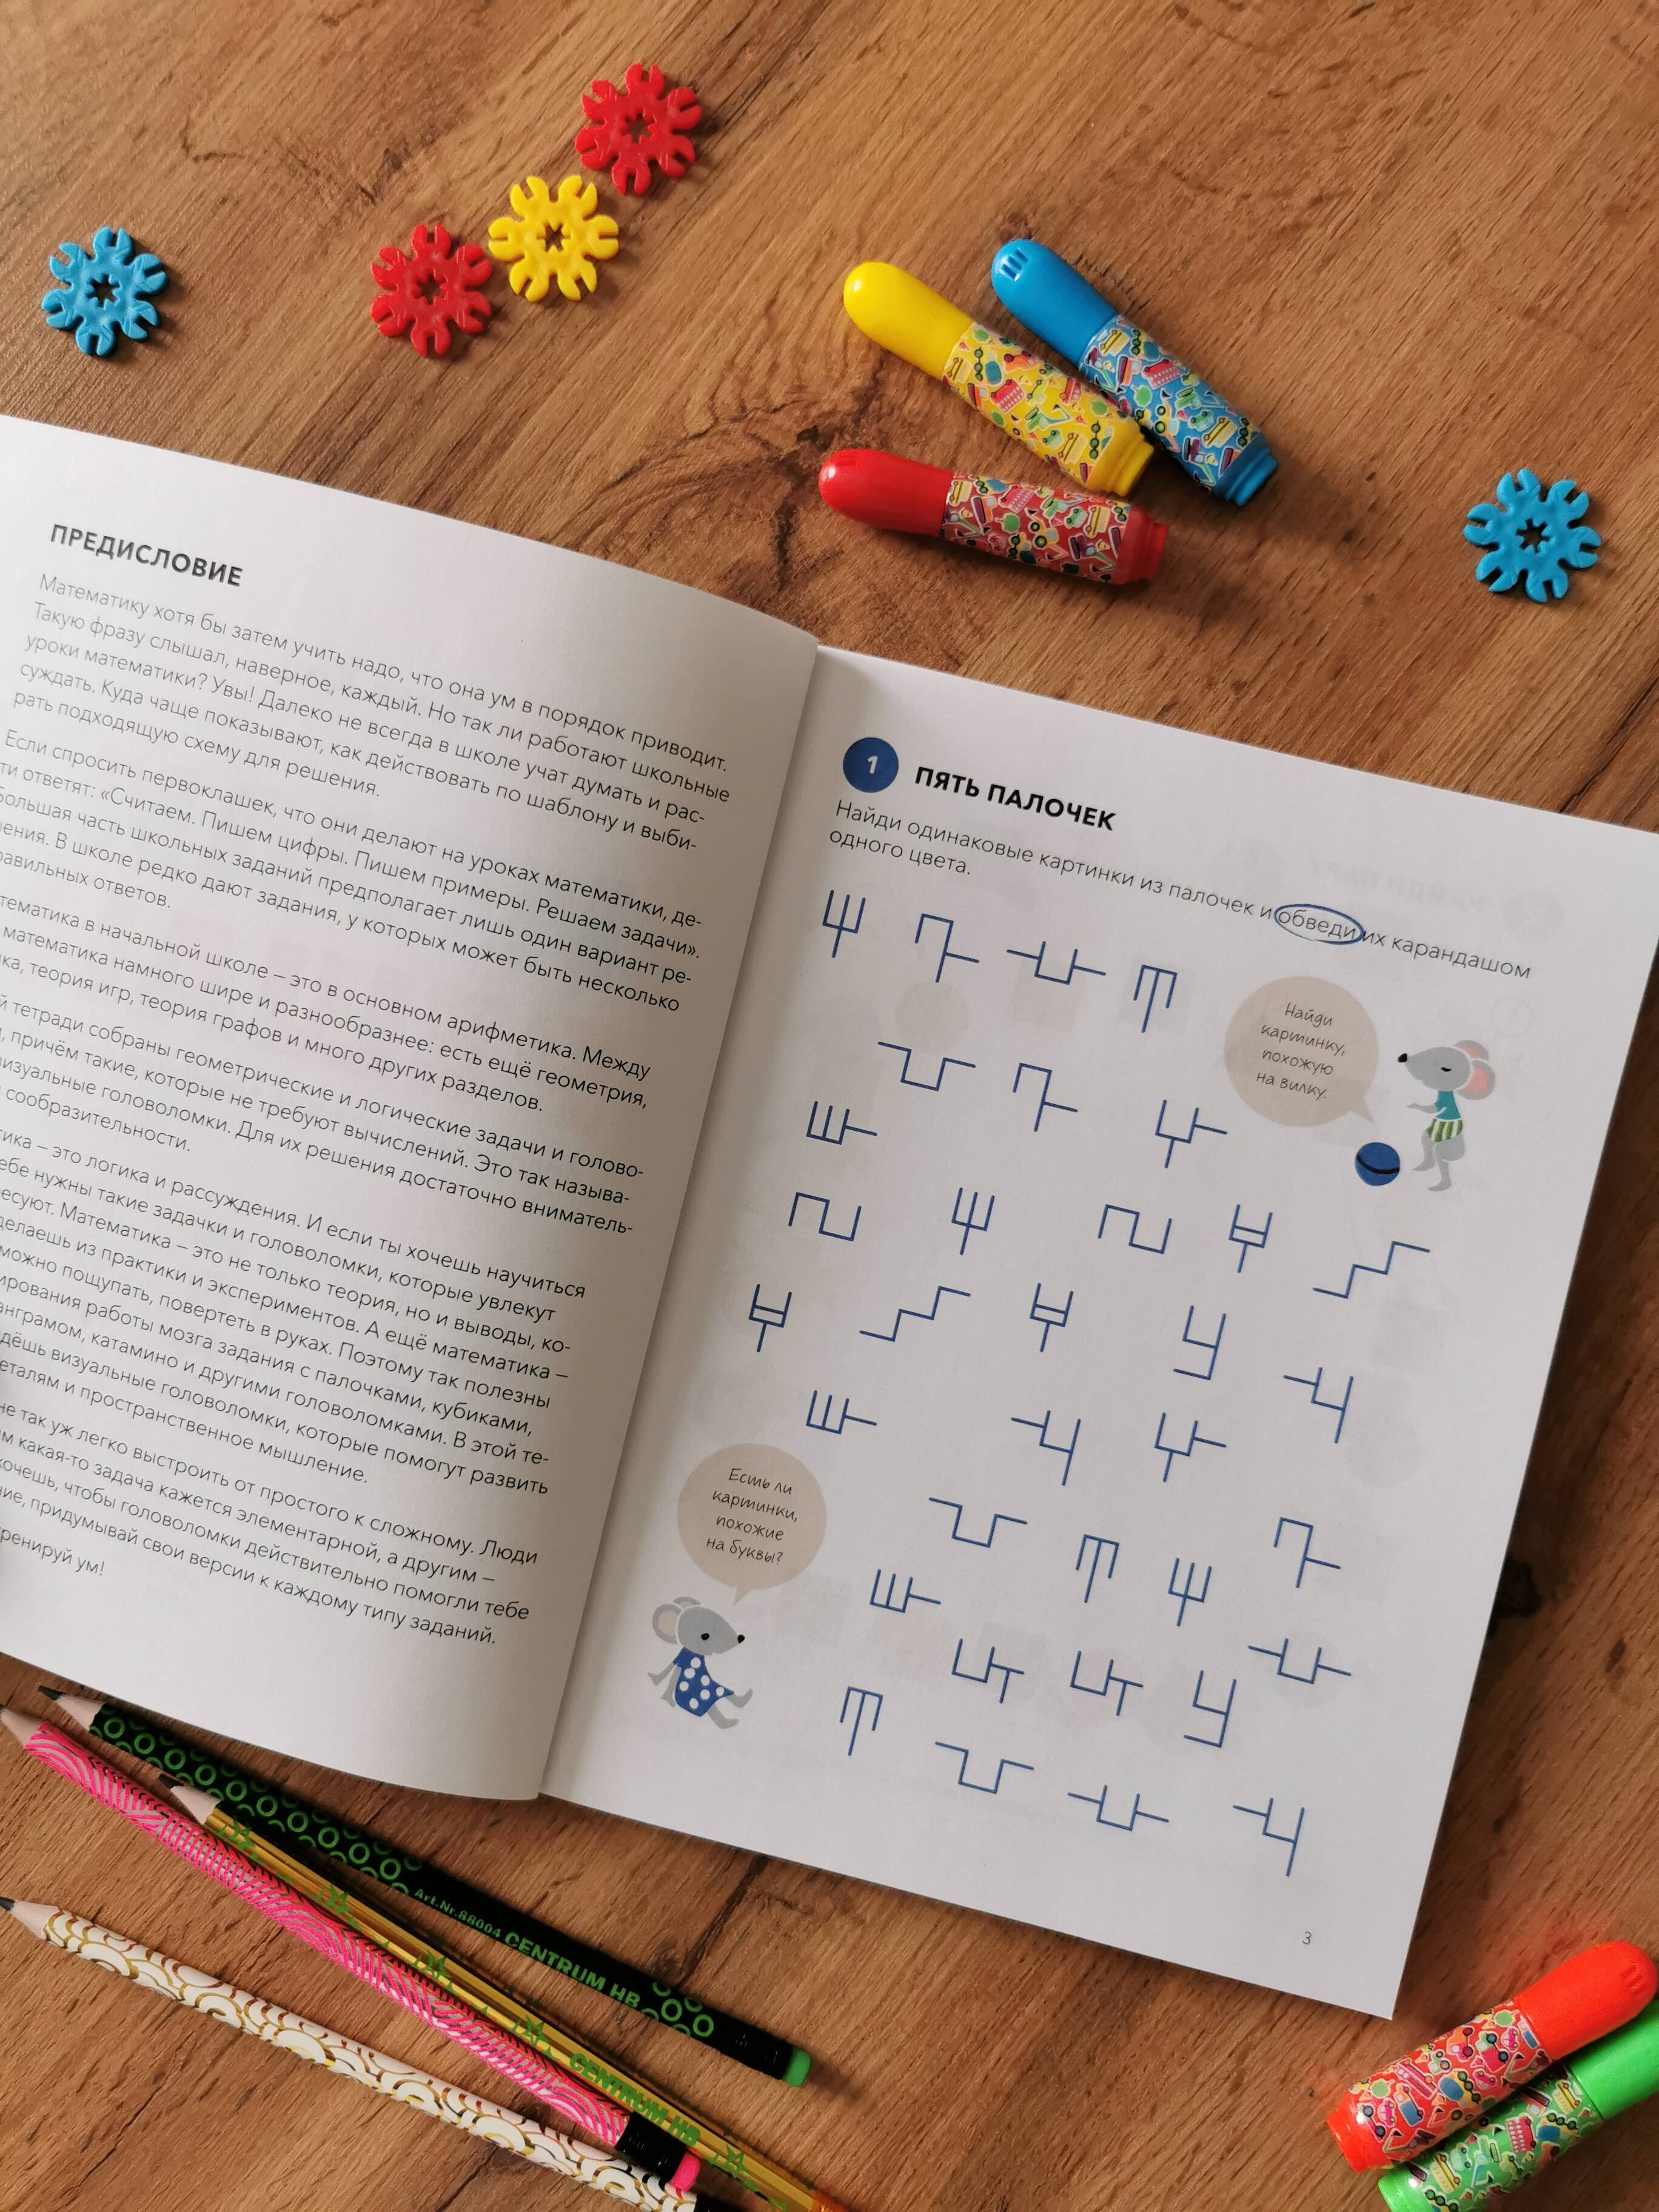 ПРЕДИСЛОВИЕ
Математику хотя бы затем учить надо, что она ум в порядок приводит.
Такую фразу слышал, наверное, каждый. Но так ли работают школьные
уроки математики? Увы! Далеко не всегда в школе учат думать и рас-
суждать. Куда чаще показывают, как действовать по шаблону и выби-
рать подходящую схему для решения.
Если спросить первоклашек, что они делают на уроках математики, де-
ти ответят: «Считаем. Пишем цифры. Пишем примеры. Решаем задачи».
большая часть школьных заданий предполагает лишь один вариант ре-
В школе редко дают задания, у которых может быть несколько
ответов.
в начальной школе – это в основном арифметика. Между
математика намного шире и разнообразнее: есть ещё геометрия,
теория игр, теория графов и много других разделов.
тетради собраны геометрические и логические задачи и голово-
причём такие, которые не требуют вычислений. Это так называ-
визуальные головоломки. Для их решения достаточно вниматель-
сообразительности.
– это логика и рассуждения. И если ты хочешь научиться
нужны такие задачки и головоломки, которые увлекут
Математика – это не только теория, но и выводы, ко-
делаешь из практики и экспериментов. А ещё математика –
можно пощупать, повертеть в руках. Поэтому так полезны
работы мозга задания с палочками, кубиками,
катамино и другими головоломками. В этой те-
визуальные головоломки, которые помогут развить
и пространственное мышление.
не так уж легко выстроить от простого к сложному. Люди
какая-то задача кажется элементарной, а другим –
хочешь, чтобы головоломки действительно помогли тебе
придумывай свои версии к каждому типу заданий.
ум!
1 ПЯТЬ ПАЛОЧЕК
Найди одинаковые картинки из палочек и обведи их карандашом
одного цвета.
Найди
картинку,
похожую
на вилку.
Есть ли
картинки,
похожие
на буквы?
3
Art.Nr.88004 CENTRUM HB
CENTRUM HB